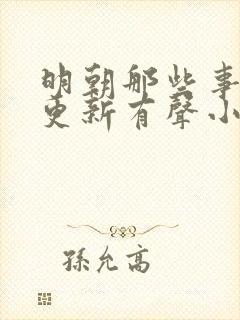 明朝那些事
更新有聲小
孫允高